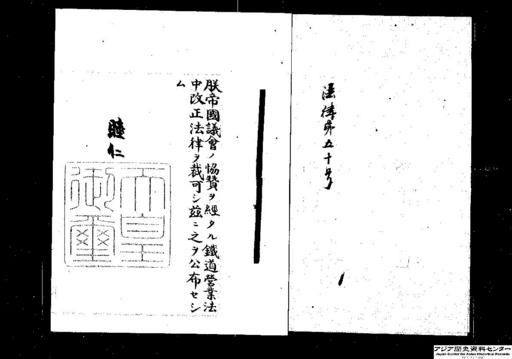 法律第五十号
朕帝國議會ノ協賛ヲ經タル鐵道營業法
中改正法律ヲ裁可シ茲ニ之ヲ公布セシ
ム
睦仁
天皇
御璽
アジア歴史資料センター
Japan Center for Asian Historical Records